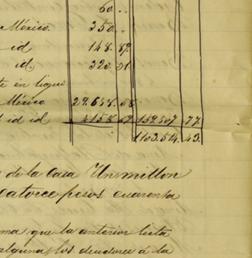 50 ..
México. 350 ..
id 148. 87
id 320. 01
te en liqui
México 22658. 68
d id id. 4158. 67 152.507. 77.
1102.514. 43.
de la Casa Un millon
catorce pesos cuarenta
ma que la anterior lista
algunas los deudores á la